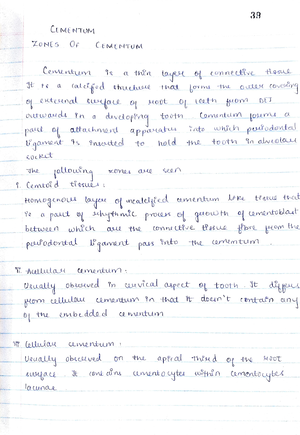 39
CEMENTUM
ZONES OF CEMENTUM
Cementum is a thin layer of connective tissue
It is a calcified structure that forms the outer covering
of external surface of root of teeth from DEJ
outwards in a developing tooth. Cementum forms a
part of attachment apparatus into which periodontal
ligament is inserted to hold the tooth in alveolar
socket
The following zones are seen
i. Cementoid tissue:
Homogenous layer of uncalcified cementum like tissue that
is a part of rhythmic process of growth of cementoblast
between which are the connective tissue fibre from the
periodontal ligament pass into the cementum.
ii. Acellular cementum:
Usually observed in cervical aspect of tooth. It differs
from cellular cementum in that it doesn't contain any
of the embedded cementum
iii. Cellular cementum:
Usually observed on the apical third of the root
surface. It contains cementocytes within cementocytes
lacunae